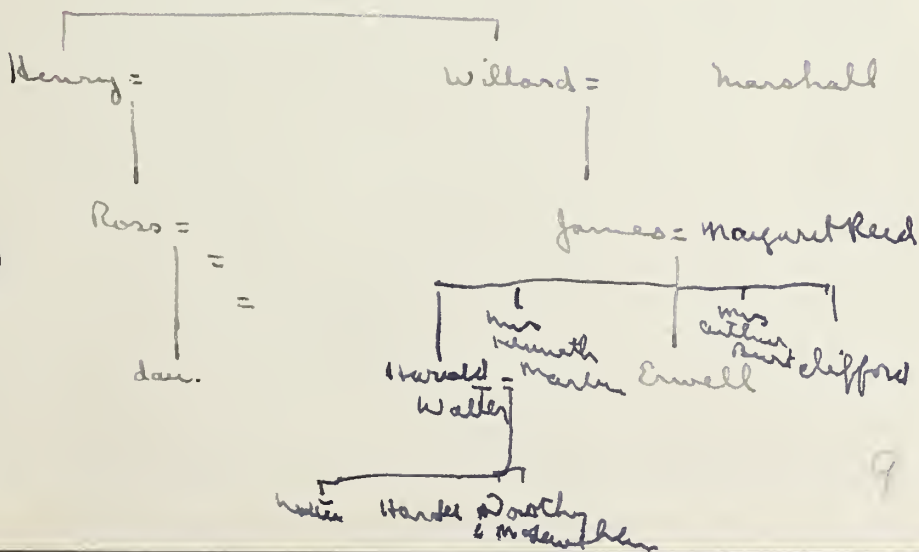 Henry = Willard = Marshall
Ross = James = Margaret Reed
=
=
Mrs Kenneth Martin
Mrs Arthur
dau. Harold = Erwell Clifford
Walter
Dorothy
9